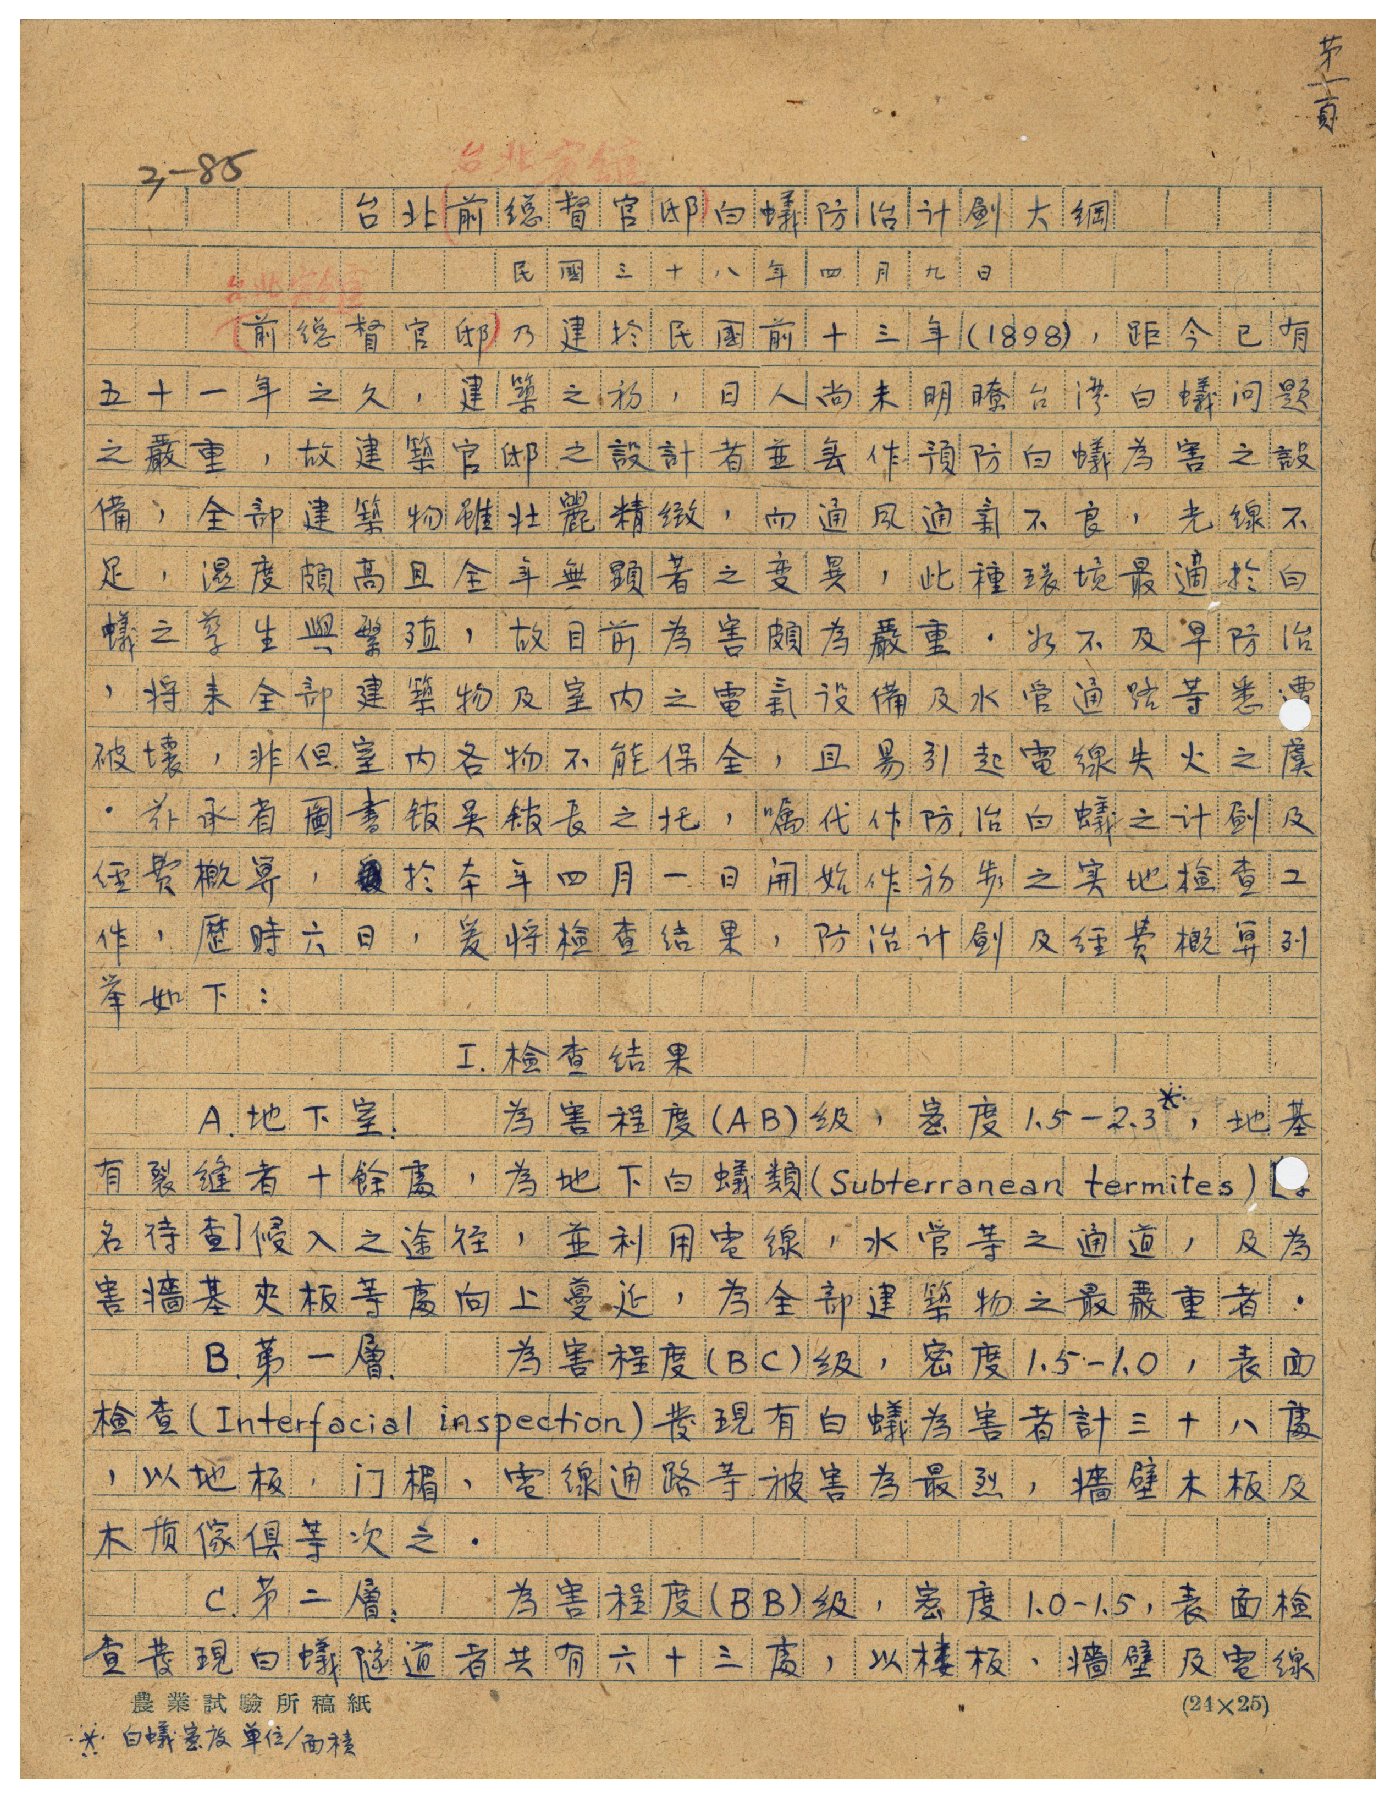 第一頁
3-85
台北賓館
台北(前總督官邸)白蟻防治计劃大綱
民國三十八年四月九日
台北賓館
(前總督官邸)乃建於民國前十三年(1898)，距今已有
五十一年之久，建築之初，日人尚未明瞭台湾白蟻问題
之嚴重，故建築官邸之設計者並無作預防白蟻為害之設
備，全部建築物雖壯麗精緻，而通风通氣不良，光線不
足，濕度頗高且全年無顕著之变異，此種環境最適於白
蟻之孳生與繁殖，故目前為害頗為嚴重．如不及早防治
，将来全部建築物及室内之電氣设備及水管通路等悉遭
破壞，非但室内各物不能保全，且易引起電線失火之虞
．茲承省圖書舘吴舘長之托，嘱代作防治白蟻之计劃及
經費概算，於本年四月一日開始作初步之実地檢查工
作，歷時六日，爰将檢查結果，防治计劃及經費概算列
举如下：
I.檢查结果
A.地下室. 為害程度(AB)级，密度1.5-2.3※，地基
有裂縫者十餘處，為地下白蟻類(Subterranean termites)[
名待查]侵入之途徑，並利用電線，水管等之通道，及為
害墙基夾板等處向上蔓延，為全部建築物之最嚴重者．
B.第一層. 為害程度(BC)级，密度1.5-1.0，表面
檢查(Interfacial inspection)發現有白蟻為害者計三十八處
，以地板，门楣、電線通路等被害為最烈，墙壁木板及
木质傢俱等次之．
C.第二層. 為害程度(BB)级，密度1.0-1.5，表面檢
查發現白蟻隧道者共有六十三處，以楼板、墙壁及電線
農業試驗所稿紙 (24×25)
※ 白蟻密度 单位/面積